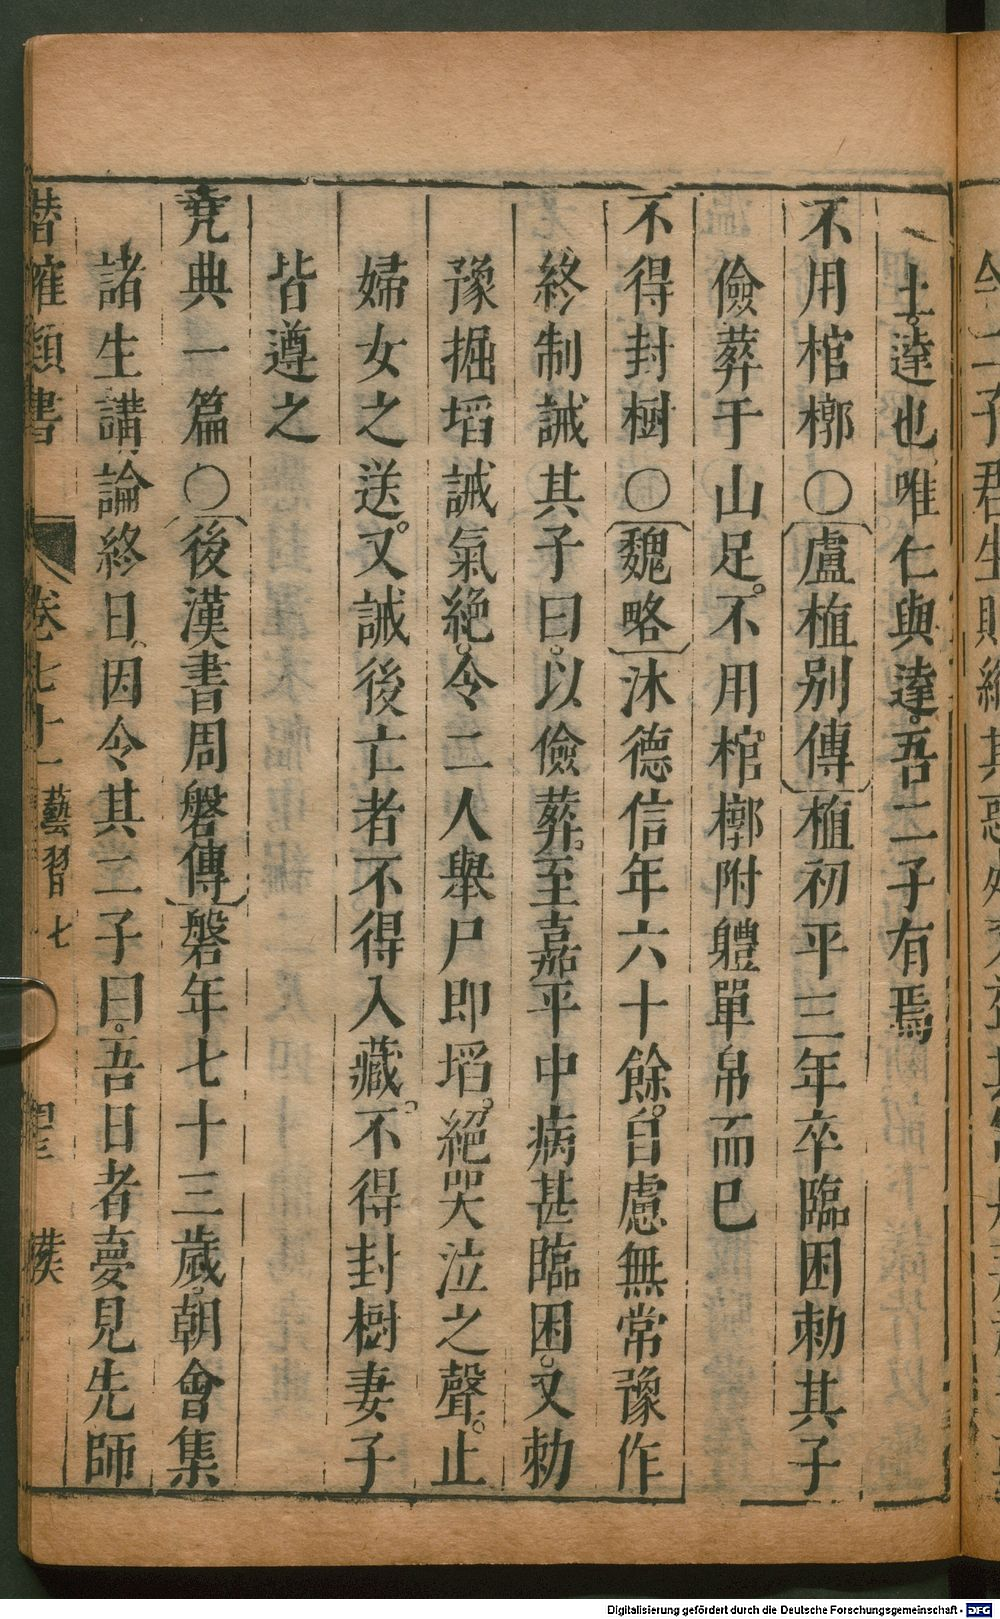 土達也唯仁與達吾二子有焉
不用棺槨〇盧植別傳植初平三年卒臨困勅其子
儉葬于山足不用棺槨附軆單帛而已
不得封樹〇魏略沐德信年六十餘自慮無常豫作
終制誡其子曰以儉葬至嘉平中病甚臨困又勅
豫掘塪誡氣絕令二人舉尸即塪絕哭泣之聲止
婦女之送又誡後亡者不得入藏不得封樹妻子
皆遵之
堯典一篇〇後漢書周磐傳磐年七十三歲朝會集
諸生講論終日因令其二子曰吾日者夢見先師
潛確類書 卷七十一 藝習七
Digitalisierung gefördert durch die Deutsche Forschungsgemeinschaft - DFG